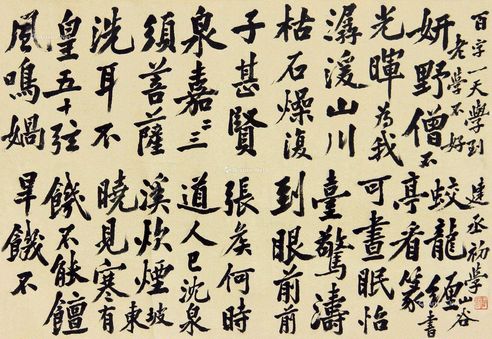 風鳴媧
皇五十弦
洗耳不
須菩薩
泉嘉二三
子甚賢
枯石燥復
潺湲山川
光暉為我
妍野僧不
百字一天學到
老學不好
旱饑不
饑不能饘
曉見寒有
溪炊煙東坡
道人已沈泉
張矦何時
到眼前前
臺驚濤
可晝眠怡
亭看篆
蛟龍纏
山谷書
建丞初學